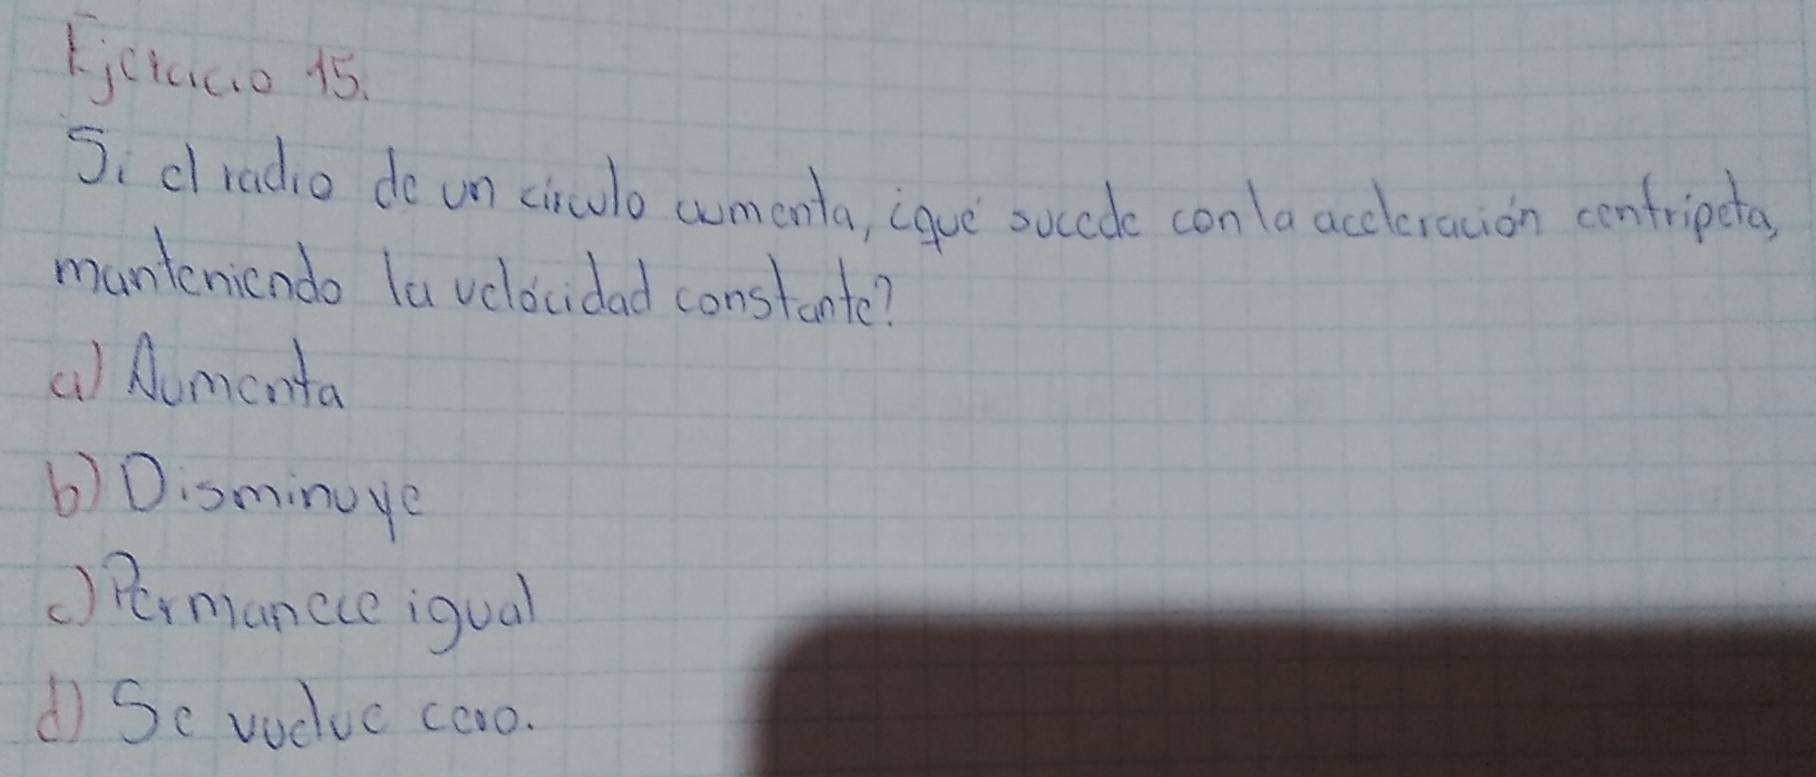 Ejercicio 15.
Si el radio de un círculo aumenta, ¿qué sucede con la aceleración centripeta,
manteniendo la velocidad constante?
a) Aumenta
b) Disminuye
c) Permanece igual
d) Se vuelve cero.